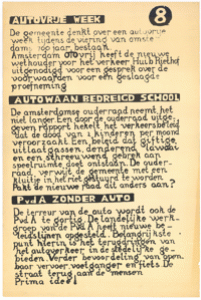 AUTOVRIJE WEEK
8
de gemeente denkt over een autovrije
week tijdens de viering van amste
dam 700 jaar bestaan.
Amsterdam autovrij heeft de nieuwe
wethouder voor het verkeer Huib Riethof
uitgenodigd voor een gesprek over de
voorwaarden voor een geslaagde
proefneming
AUTOWAAN BEDREIGD SCHOOL
de amsterdamse ouderraad neemt het
niet langer. Een door de ouderraad uitge-
geven rapport hekelt het verkeersbeleid
dat de dood van 1 kinderen per maand
veroorzaakt. Een beleid dat giftige
uitlaatgassen, denderend lawaai
en een schreeuwend gebrek aan
speelruimte doet ontstaan. De ouder-
raad, verwijt de gemeente met een
kluitje in het riet gestuurd te worden.
Pakt de nieuwe raad dit anders aan?
PvdA ZONDER AUTO
De terreur van de auto wordt ook de
PvdA te gortig. De landelijke werk-
groep van de PvdA heeft nieuwe be-
leidslijnen opgesteld. Belangrijkste
punt hierin is het terugdringen van
het autoverkeer in de stedelijke ge-
bieden. Verder bevordering van open-
baar vervoer, voetganger en fiets. De
straat terug aan de mensen
Prima idee!